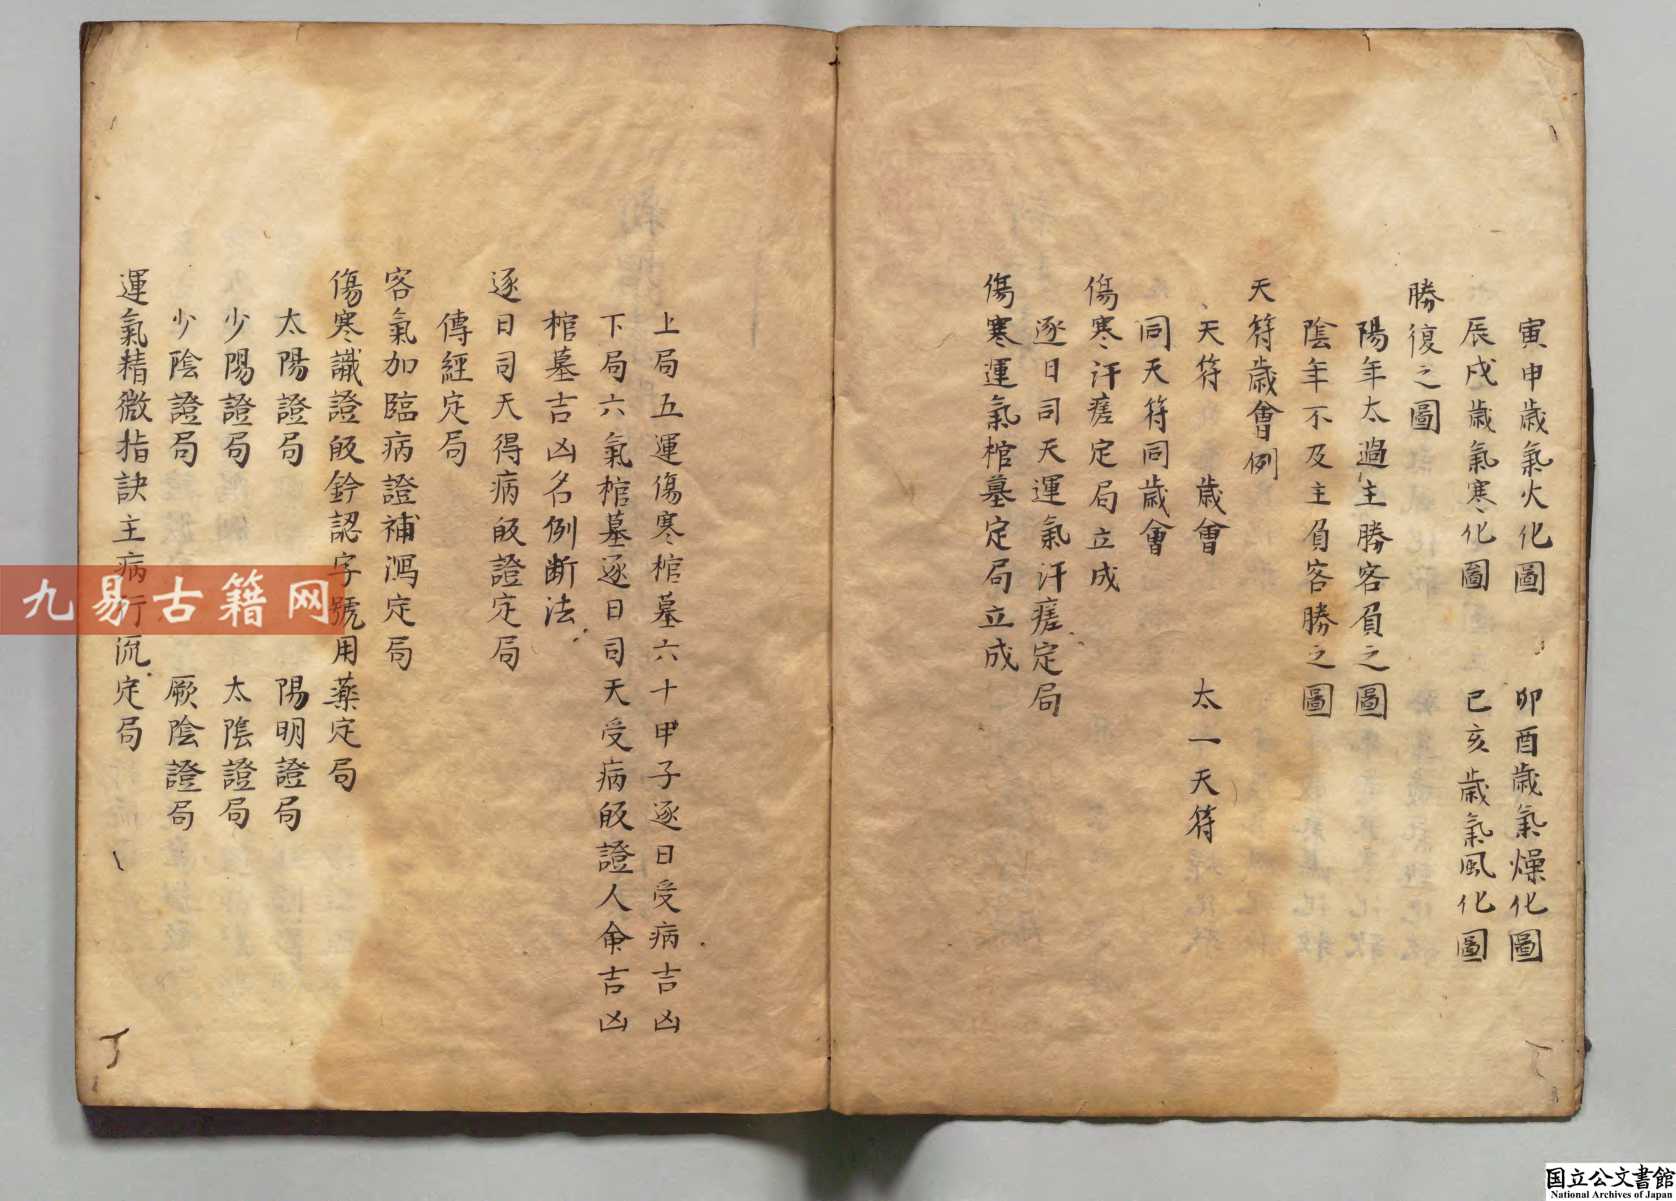 寅申歲氣火化圖 卯酉歲氣燥化圖
辰戌歲氣寒化圖 己亥歲氣風化圖
勝復之圖
陽年太過主勝客負之圖
陰年不及主負客勝之圖
天符歲會例
天符 歲會 太一天符
同天符同歲會
傷寒汗瘥定局立成
逐日司天運氣汗瘥定局
傷寒運氣棺墓定局立成
上局五運傷寒棺墓六十甲子逐日受病吉凶
下局六氣棺墓逐日司天受病皈證人命吉凶
棺墓吉凶名例断法
逐日司天得病皈證定局
傳經定局
客氣加臨病證補瀉定局
傷寒識證皈鈐認字號用藥定局
太陽證局 陽明證局
少陽證局 太陰證局
少陰證局 厥陰證局
運氣精微指訣主病行流定局
九易古籍网
国立公文書館
National Archives of Japan